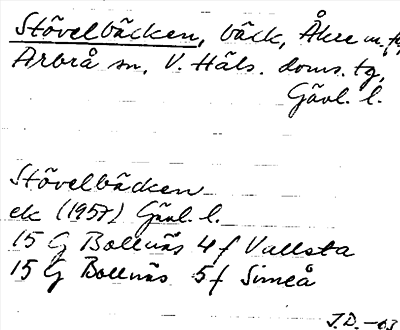 Stövelbäcken, bäck, Åkre m. fl.,
Arbrå sn, V. Häls. doms. tg,
Gävl. l.
Stövelbäcken
ek (1957) Gävl. l.
15 G Bollnäs 4 f Vallsta
15 G Bollnäs 5 f Simeå
J.D. -03